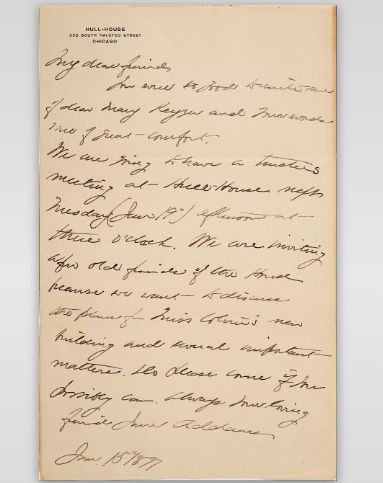 HULL-HOUSE
335 SOUTH HALSTED STREET
CHICAGO
My dear friends
You were so good to write me
of dear Mary Keyser and your words
were of great comfort.
We are going to have a trustees
meeting at Hull-House next
Tuesday (June 19") afternoon at
three o'clock. We are inviting
a few old friends of the House
because we want to discuss
the plans of Miss Colvin's new
building and several important
matters. Do please come if you
possibly can. Always your loving
friend Jane Addams
Jan 15" 1897